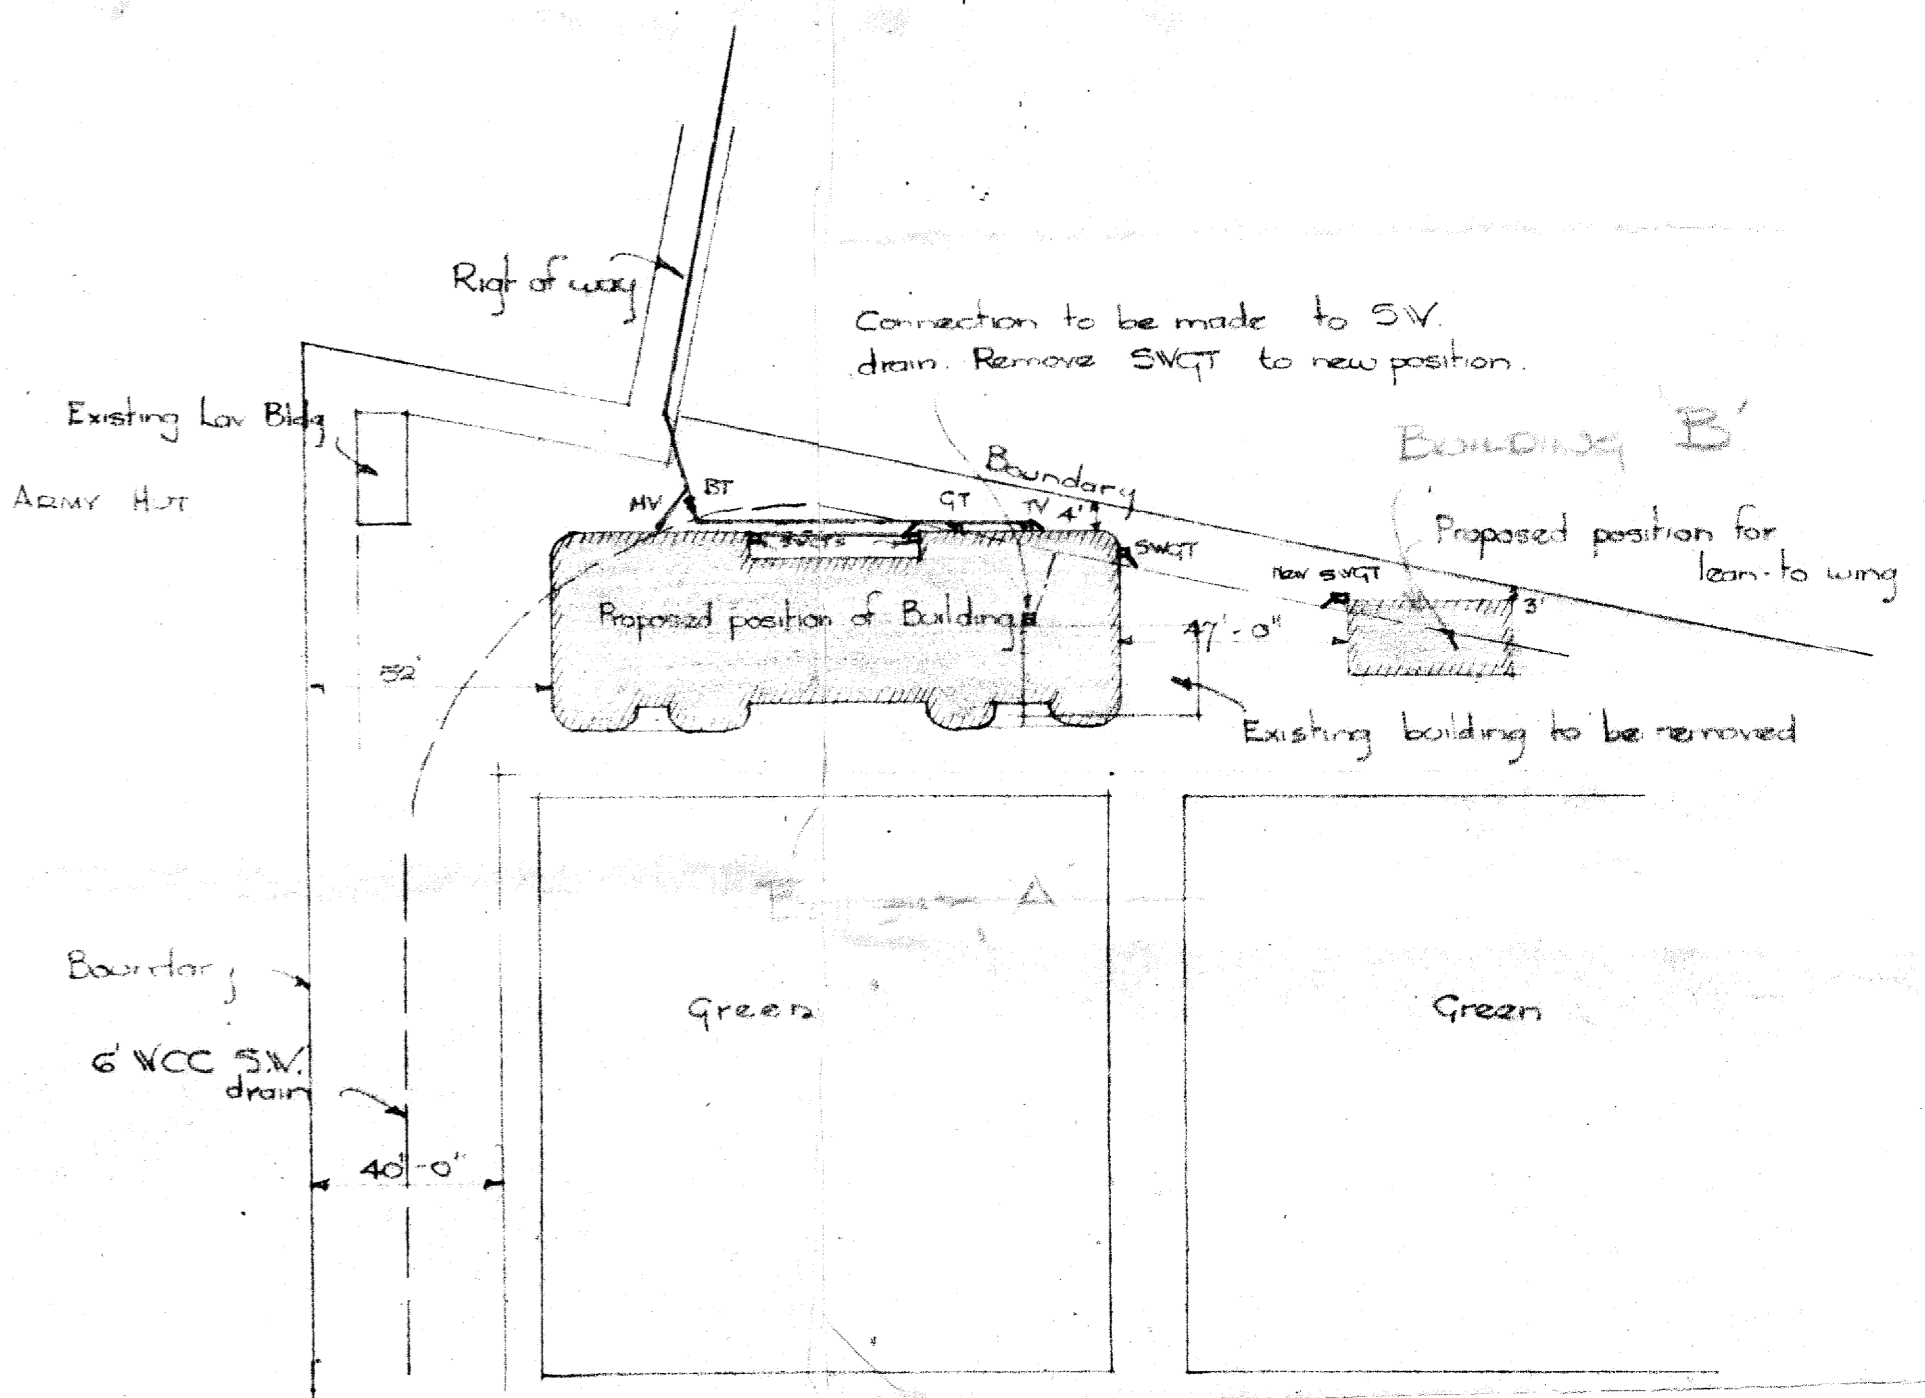 Rigt of way
Connection to be made to S.W.
drain. Remove SWGT to new position.
Existing Lav Bldg
BUILDING B'
ARMY HUT
Boundary
MV
BT
GT
TV
4'
SWGT
Proposed position for
lean-to wing
New SWGT
3'
Proposed position of Building
47'-0"
52'
Existing building to be removed
A
Boundary
Green
Green
6' WCC S.W.
drain
40'-0"